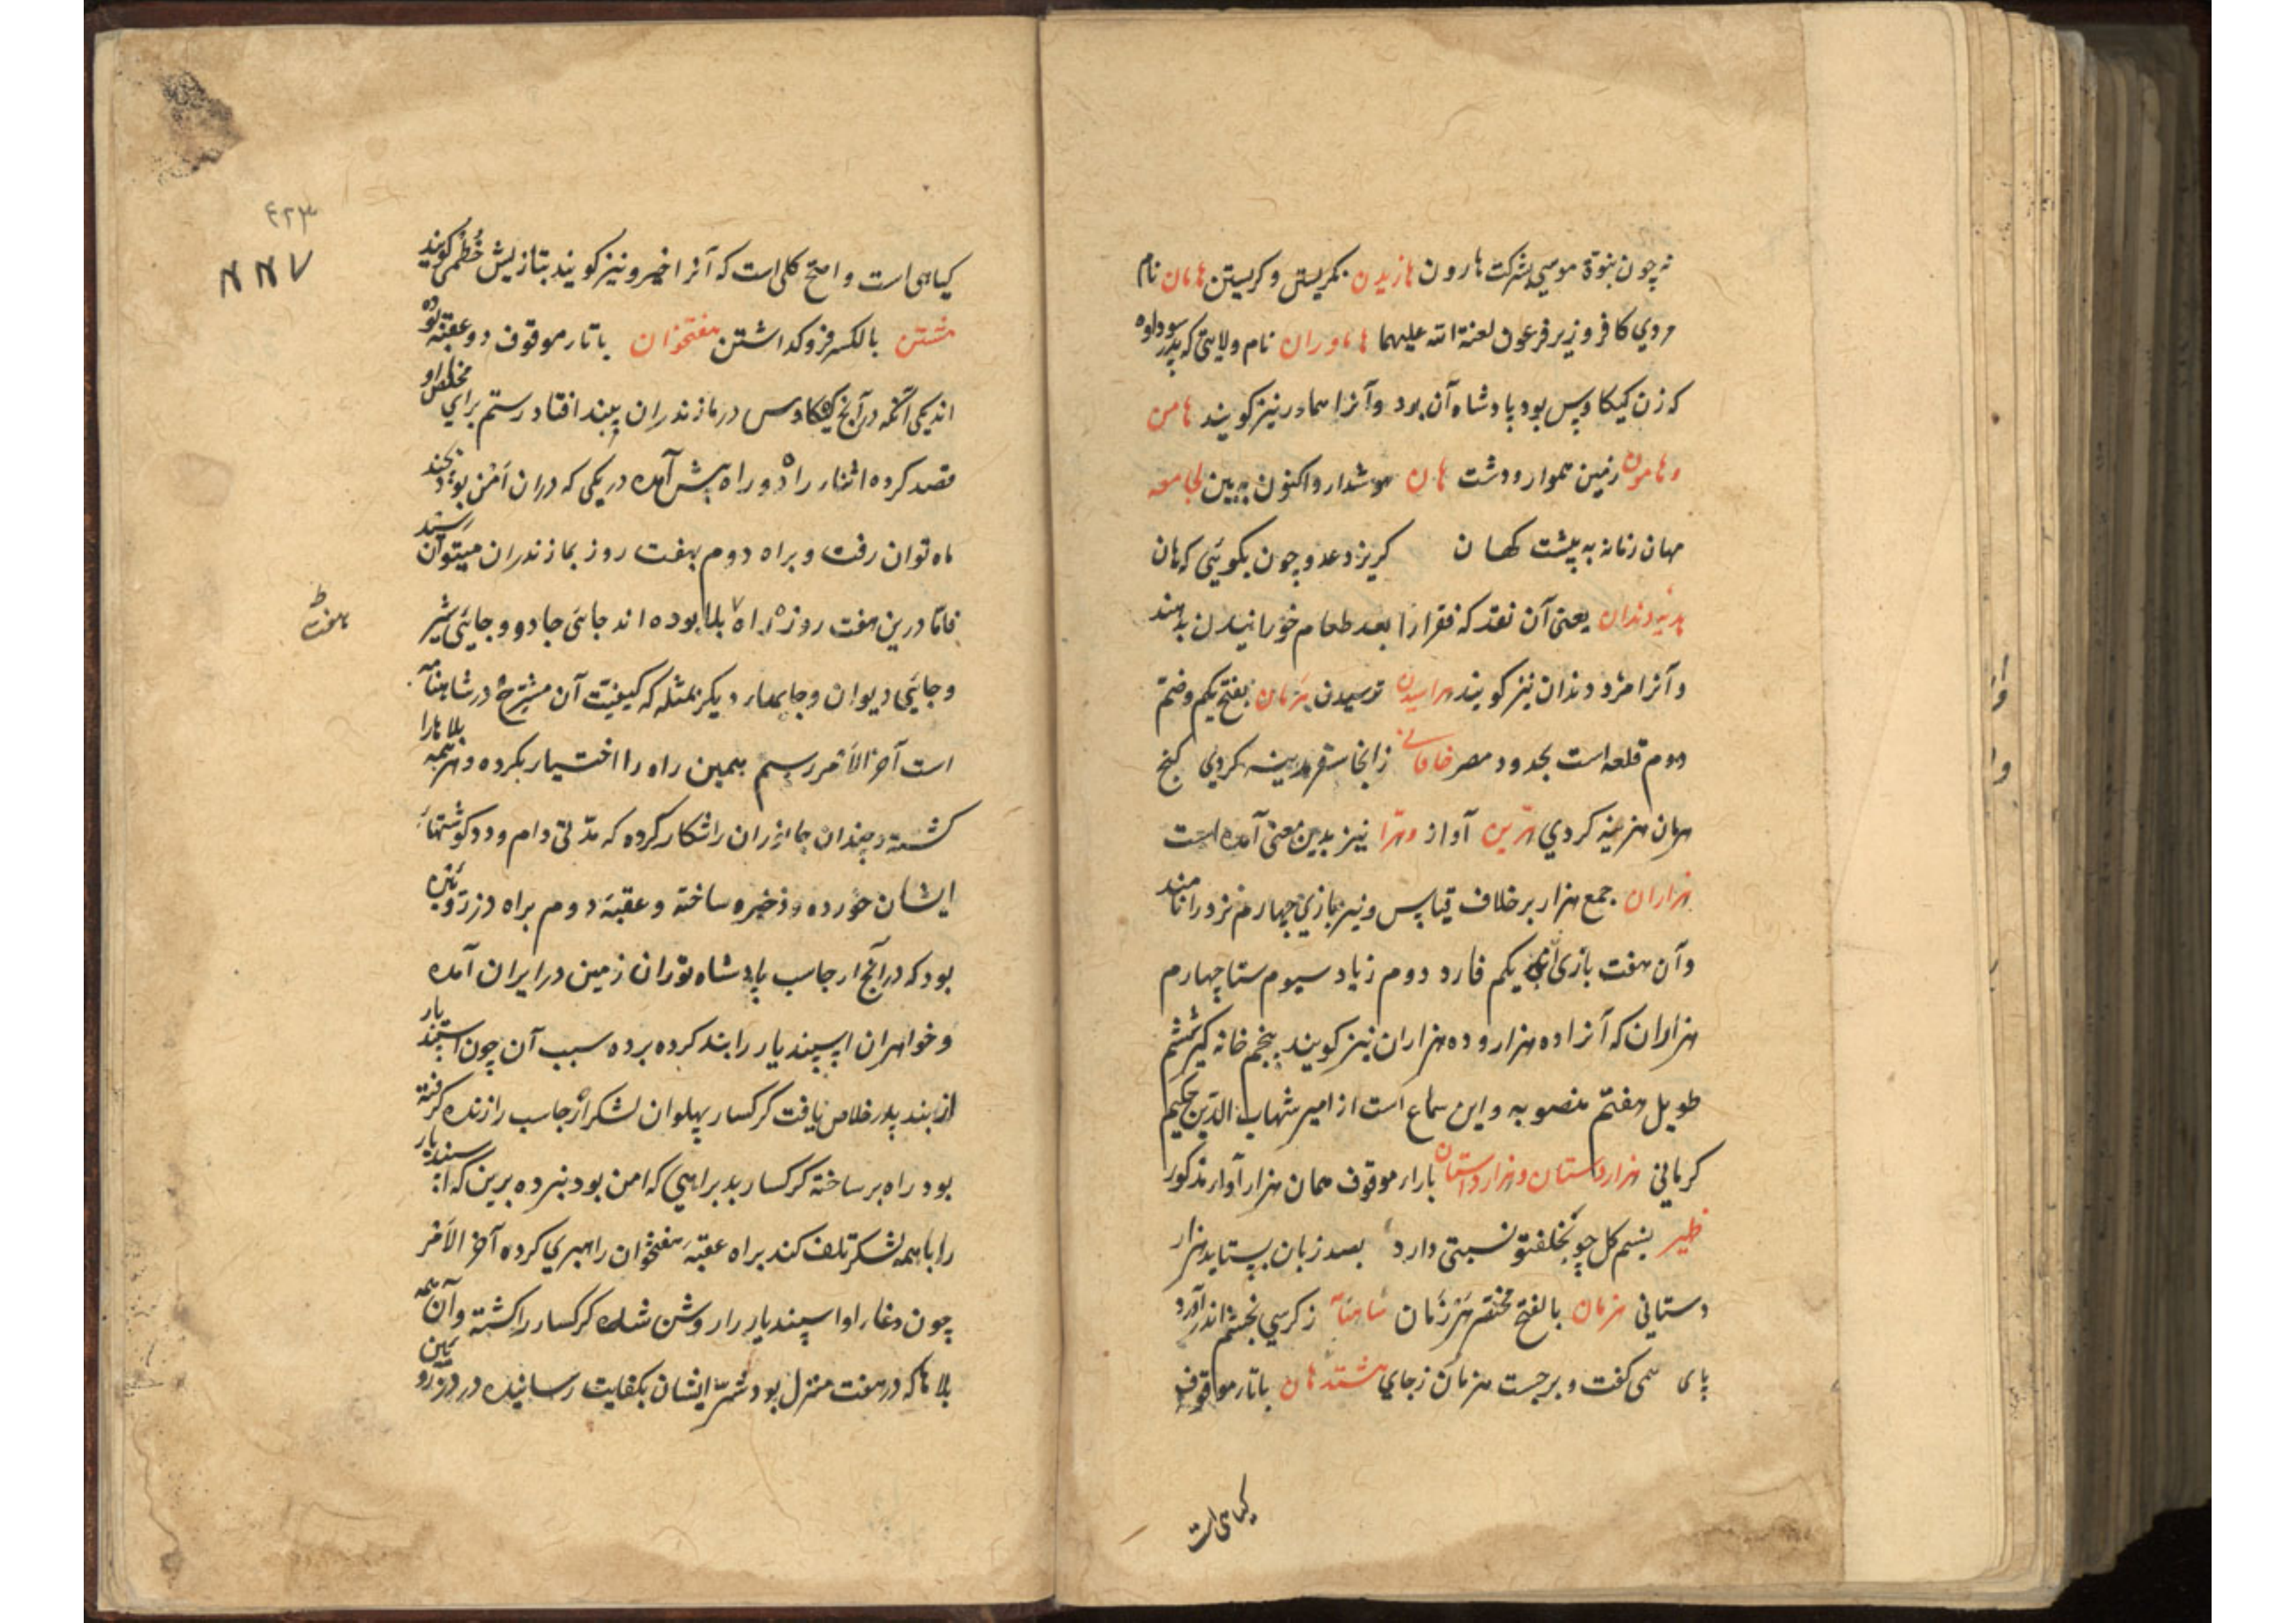 نه چون بنوة موسی بشرکت هارون هازیدن نکریستن و کریستن هامان نام
مردي کافر وزیر فرعون لعنة الله علیهما هاماوران نام ولایتی که پدر سوداوه
که زن کیکاوس بود پادشاه آن بود و آنرا هماور نیز کویند هامن
و هامون زمین هموار و دشت هان هوشدار و اکنون به بین لجامعه
مهان زمانه به پیشت کهان کریزد عدو چون بکوئی که هان
هدیه دندان یعنی آن نقد که فقرا را بعد طعام خورانیدن بدهند
و آنرا مزد دندان نیز کویند هراسیدن ترسیدن هرمان بفتح یکم و ضم
دوم قلعه است بحدود مصر خاقانی زانجا سفر مدینه کردي کنج
هرمان هزینه کردي هرین آواز و هرا نیز بدین معنی آمده است
هزاران جمع هزار بر خلاف قیاس و نیز بازي چهارم نرد را نامند
و آن هفت بازی یکم فارد دوم زیاد سیوم ستا چهارم
هزاران که آنرا ده هزار و ده هزاران نیز کویند پنجم خانه کیر ششم
طویل هفتم منصوبه و این سماع است از امیر شهاب الدین حکیم
کرمانی هزاردستان و هزارداستان باراء موقوف همان هزار آواز مذکور
ظهیر نسیم کل چو بخلقتو نسبتی دارد بصد زبان بستاید هزار
دستانی هزمان بالفتح مختصر هرزمان شاهنامه ز کرسي بخشم اندر آورد
پای همی کفت و برجست هزمان زجاي هشتدهان باتاء موقوف
کیاهی است
٤٢٣
کیاهی است و اصح کلی است که آنرا خیرو نیز کویند بتازیش خطمی کویند
هشتن بالکسر فروکداشتن هفتخوان باتاء موقوف دو عقبه بوده
اند یکی آنکه در آنچ کیکاوس در مازندران ببند افتاد رستم براي مخلص او
قصد کرده اثناء راه دو راه پیش آمده در یکی که در آن امن بود بچند
ماه توان رفت و براه دوم بهفت روز بمازندران میتوان رسید
فاما درین هفت روزه راه بلاها بوده اند جائی جادو و جائی شیر
و جائی دیوان و جایهاء دیکر بمثله که کیفیت آن مشرح در شاهنامه
است آخر الامر رستم همین راه را اختیار بکرده و هر همه بلاها را
کشته و چندان جانوران را شکار کرده که مدتی دام و دد کوشتهاء
ایشان خورده و ذخیره ساخته و عقبه دوم براه دز روئین
بود که در آنچ ارجاسب پادشاه توران زمین در ایران آمده
و خواهران اسپندیار را بند کرده برده سبب آن چون اسپندیار
از بند پدر خلاص یافت کرکسار پهلوان لشکر ارجاسب را زنده کرفته
بود راه بر ساخته کرکسار بد براهی که امن بود نبرده برین که اسپندیار
را با همه لشکر تلف کند براه عقبه هفتخوان راهبري کرده آخر الامر
چون دغاء او اسپندیار را روشن شد کرکسار را کشته و آن همه
بلاها که در هفت منزل بود شر ایشان بکفایت رسانیده در دز روئین